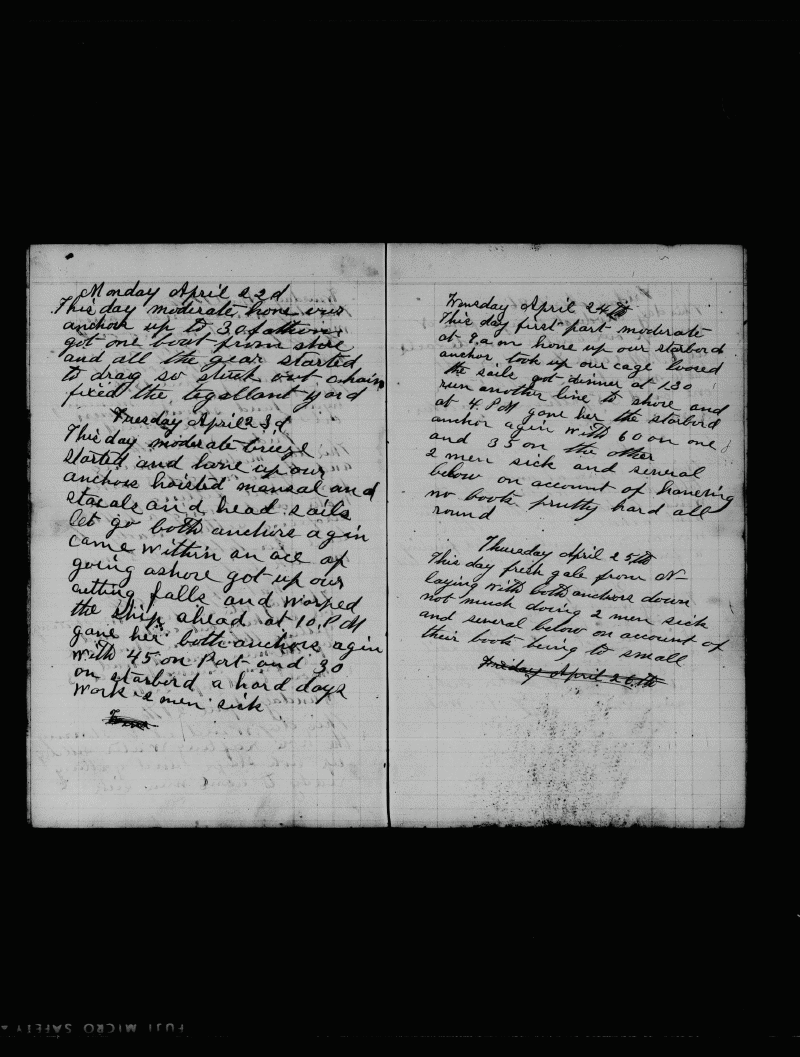 Monday April 22d
This day moderate, hove our
anchor up to 30 fathom
got one boat from shore
and all the gear started
to drag so stuck out chain
fixed the tgallant yard
Tuesday April 23d
This day moderate breeze
started and hove up our
anchors hoisted mansal and
stasals and head sails
let go both anchors again
came within an ace of
going ashore got up our
cutting falls and worped
the ship ahead at 10. P M
gave her both anchors again
with 45 on Port and 30
on starbird a hard days
work 2 men sick
Wensday April 24th
This day first part moderate
at 9, a m hove up our starbord
anchor took up our cage loosed
the sails got dinner at 1.30
run another line to shore and
at 4. P M gave her the starbird
anchor again with 60 on one
and 35 on the other
2 men sick and several
below on account of having
no boots pretty hard all
round
Thursday April 25th
This day fresh gale from N
laying with both anchors down
not much doing 2 men sick
and several below on account of
their boots being to small
Friday April 26th
FUJI MICRO SAFETY